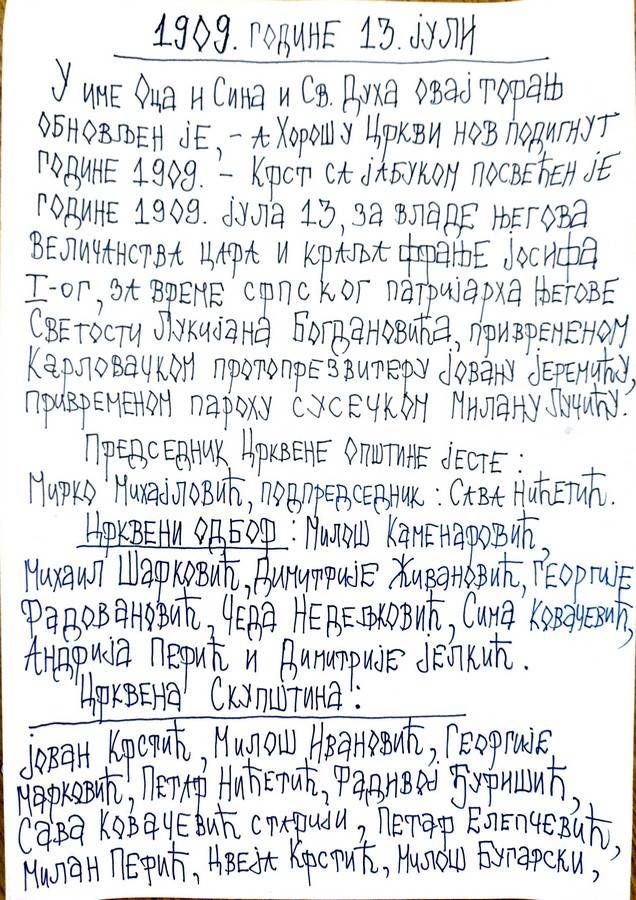 1909. ГОДИНЕ 13. ЈУЛИ
У ИМЕ ОЦА И СИНА И СВ. ДУХА ОВАЈ ТОРАЊ
ОБНОВЉЕН ЈЕ, – А ХОРОШ У ЦРКВИ НОВ ПОДИГНУТ
ГОДИНЕ 1909. – КРСТ СА ЈАБУКОМ ПОСВЕЋЕН ЈЕ
ГОДИНЕ 1909. ЈУЛА 13, ЗА ВЛАДЕ ЊЕГОВА
ВЕЛИЧАНСТВА ЦАРА И КРАЉА ФРАЊЕ ЈОСИФА
I-ОГ, ЗА ВРЕМЕ СРПСКОГ ПАТРИЈАРХА ЊЕГОВЕ
СВЕТОСТИ ЛУКИЈАНА БОГДАНОВИЋА, ПРИВРЕМЕНОМ
КАРЛОВАЧКОМ ПРОТОПРЕЗВИТЕРУ ЈОВАНУ ЈЕРЕМИЋУ,
ПРИВРЕМЕНОМ ПАРОХУ СУСЕЧКОМ МИЛАНУ ЛУЧИЋУ.
ПРЕДСЕДНИК ЦРКВЕНЕ ОПШТИНЕ ЈЕСТЕ :
МИРКО МИХАЈЛОВИЋ, ПОДПРЕДСЕДНИК : САВА НИЋЕТИЋ.
ЦРКВЕНИ ОДБОР : МИЛОШ КАМЕНАРОВИЋ,
МИХАИЛ ШАРКОВИЋ, ДИМИТРИЈЕ ЖИВАНОВИЋ, ГЕОРГИЈЕ
РАДОВАНОВИЋ, ЧЕДА НЕДЕЉКОВИЋ, СИМА КОВАЧЕВИЋ,
АНДРИЈА ПЕРИЋ И ДИМИТРИЈЕ ЈЕЛКИЋ.
ЦРКВЕНА СКУПШТИНА :
ЈОВАН КРСТИЋ, МИЛОШ ИВАНОВИЋ, ГЕОРГИЈЕ
МАРКОВИЋ, ПЕТАР НИЋЕТИЋ, РАДИВОЈ ЂУРИШИЋ,
САВА КОВАЧЕВИЋ СТАРИЈИ, ПЕТАР ЕЛЕПЧЕВИЋ,
МИЛАН ПЕРИЋ, ЦВЕЈА КРСТИЋ, МИЛОШ БУГАРСКИ,